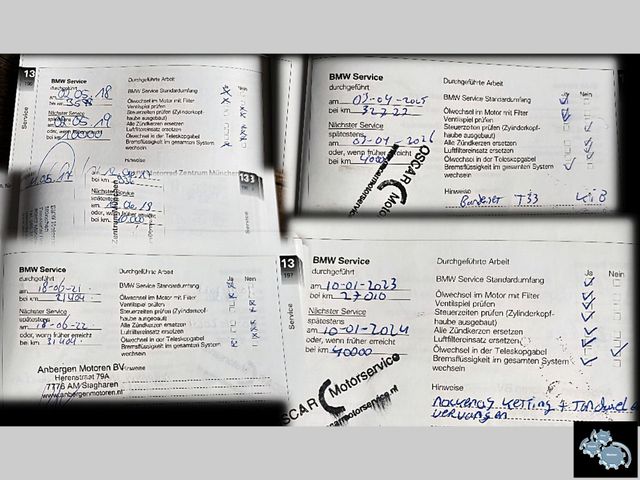 13
BMW Service
durchgeführt
am 02.05.18
bei km
Nächster Service
spätestens
am 02.05.19
oder, wenn früher erreicht
bei km 10000
Durchgeführte Arbeit
Ja Nein
BMW Service Standardumfang
Ölwechsel im Motor mit Filter
Ventilspiel prüfen
Steuerzeiten prüfen (Zylinderkopf-
haube ausgebaut)
Alle Zündkerzen ersetzen
Luftfiltereinsatz ersetzen
Ölwechsel in der Teleskopgabel
Bremsflüssigkeit im gesamten System
wechseln
Hinweise
Motorrad Zentrum München
13
bei km
Nächster Service
spätestens
am
oder, wenn früher erreicht
bei km 10.000
Service
13
197
BMW Service
durchgeführt
am 18-06-21
bei km 21404
Nächster Service
spätestens
am 18-06-22
oder, wenn früher erreicht
bei km 31404
Durchgeführte Arbeit
Ja Nein
BMW Service Standardumfang
Ölwechsel im Motor mit Filter
Ventilspiel prüfen
Steuerzeiten prüfen (Zylinderkopf-
haube ausgebaut)
Alle Zündkerzen ersetzen
Luftfiltereinsatz ersetzen
Ölwechsel in der Teleskopgabel
Bremsflüssigkeit im gesamten System
wechseln
Hinweise
Anbergen Motoren BV
Herenstraat 79A
7776 AM Slagharen
www.anbergenmotoren.nl
BMW Service
durchgeführt
am 03-04-2025
bei km 32722
Nächster Service
spätestens
am 03-04-2026
oder, wenn früher erreicht
bei km
OSCAR Motorservice
Durchgeführte Arbeit
Ja Nein
BMW Service Standardumfang
Ölwechsel im Motor mit Filter
Ventilspiel prüfen
Steuerzeiten prüfen (Zylinderkopf-
haube ausgebaut)
Alle Zündkerzen ersetzen
Luftfiltereinsatz ersetzen
Ölwechsel in der Teleskopgabel
Bremsflüssigkeit im gesamten System
wechseln
Hinweise
T33
Service
13
197
BMW Service
durchgeführt
am 10-01-2023
bei km 27010
Nächster Service
spätestens
am 10-01-2024
oder, wenn früher erreicht
bei km 40000
OSCAR Motorservice
Durchgeführte Arbeit
Ja Nein
BMW Service Standardumfang
Ölwechsel im Motor mit Filter
Ventilspiel prüfen
Steuerzeiten prüfen (Zylinderkopf-
haube ausgebaut)
Alle Zündkerzen ersetzen
Luftfiltereinsatz ersetzen
Ölwechsel in der Teleskopgabel
Bremsflüssigkeit im gesamten System
wechseln
Hinweise
Ketting +
vervangen